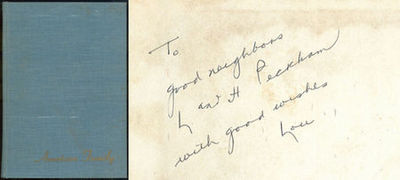 To
good neighbors
L and H Peckham
with good wishes
Lou